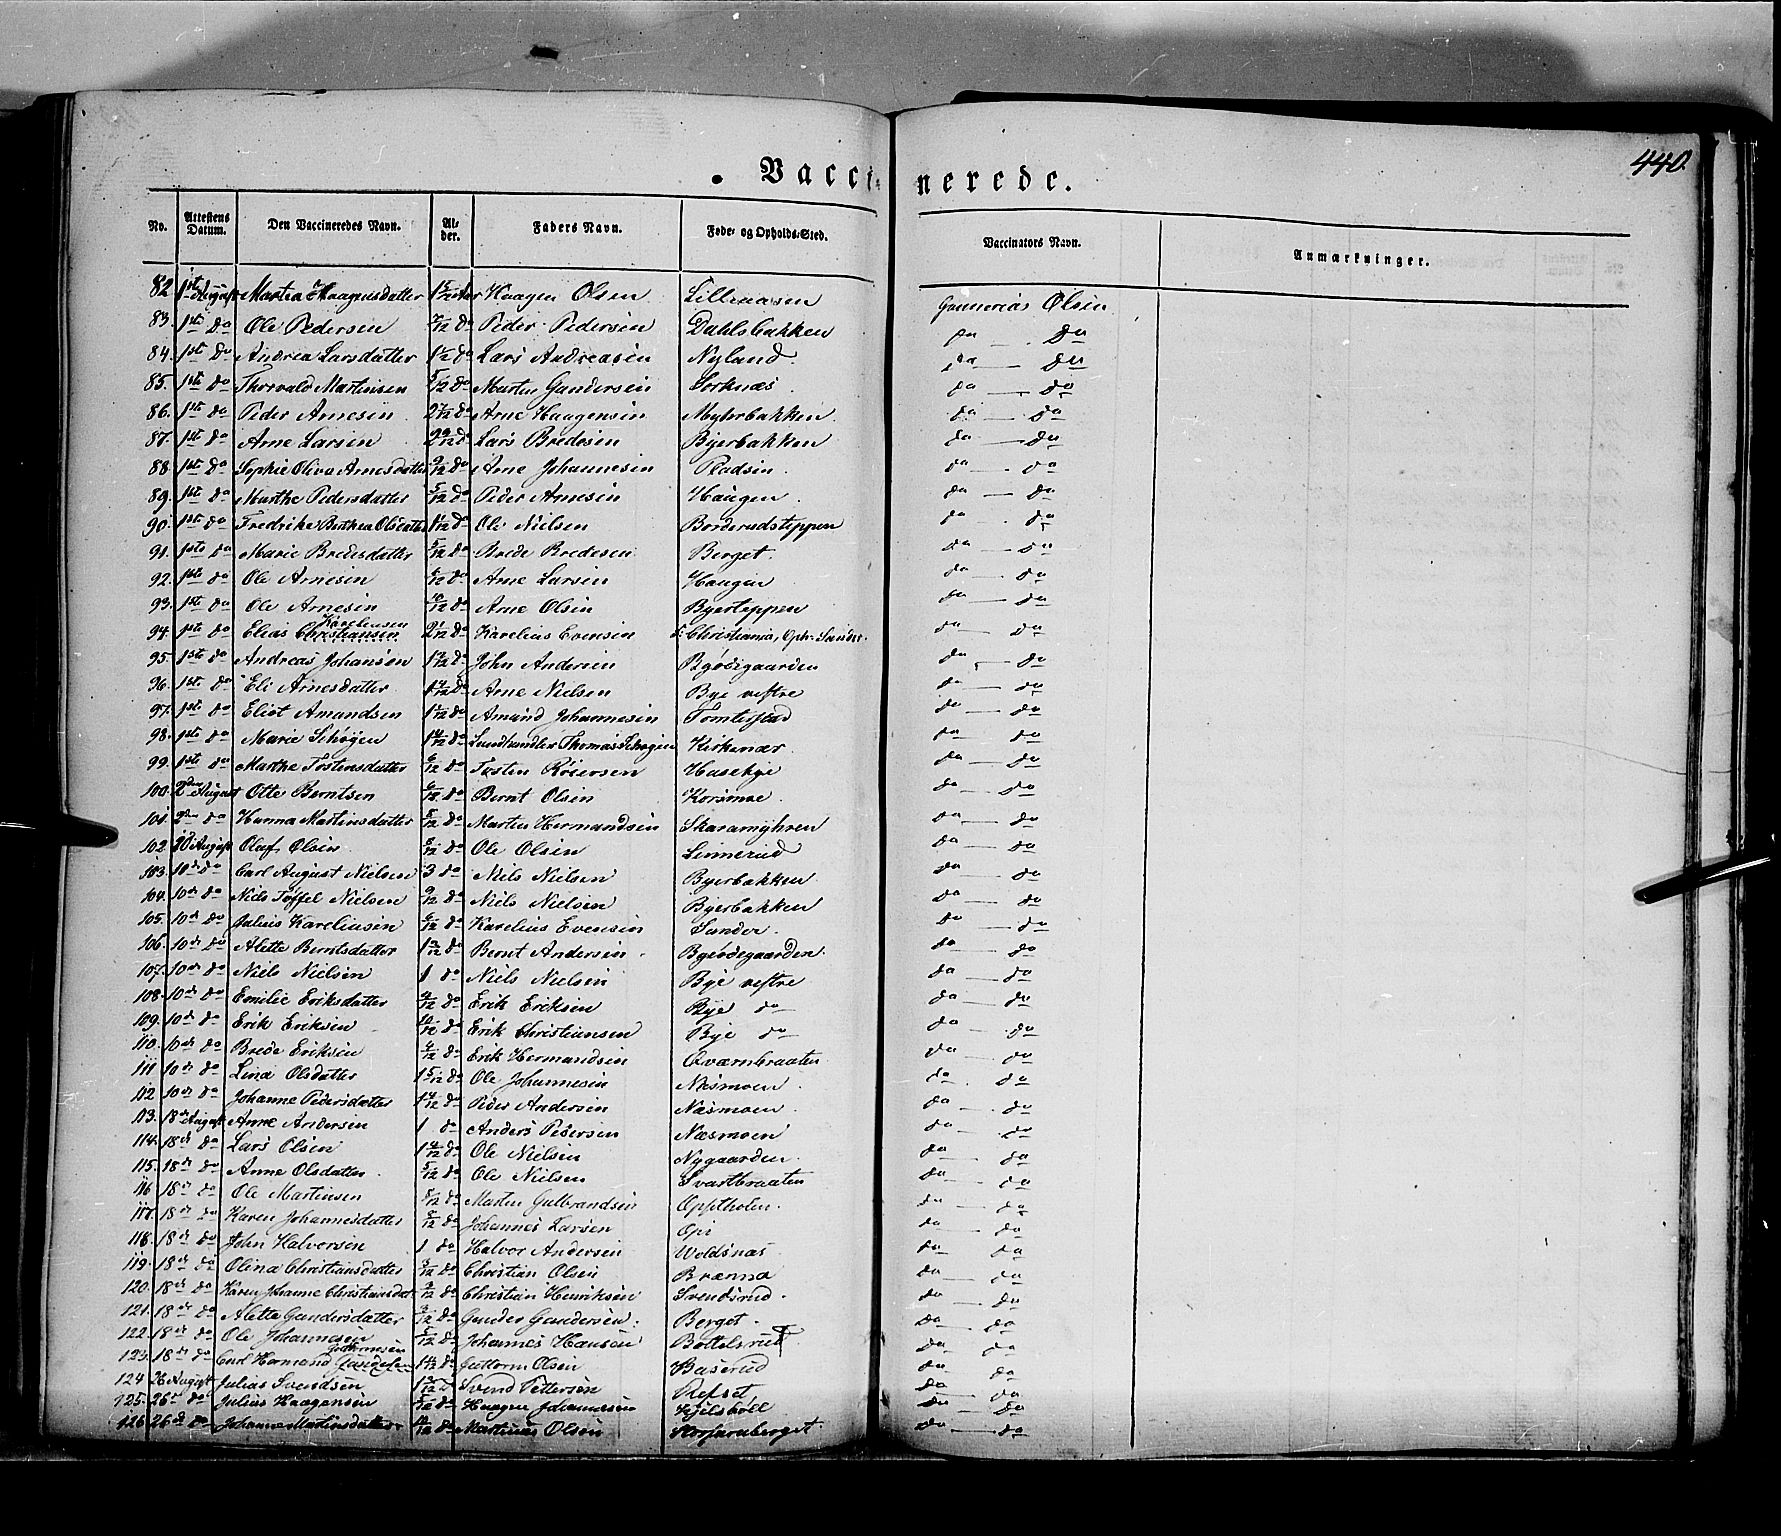 440.
Vaccinerede.
No. Attestens Datum. Den Vaccineredes Navn. Alder. Faders Navn. Føde- og Opholds-Sted. Vaccinators Navn. Anmærkninger.
82 1ste August Martea Haagensdatter Haagen Olsen Lilleaasen Olsen
83. 1ste do Ole Pedersen 7/12 do Peder Pedersen Dahlsbakken do — do
84. 1ste do Andrea Larsdatter do Lars Andreasen Nyland do — do
85. 1ste do Thorvald Martinsen 5/12 do Martin Gundersen Sorknæs do — do
86. 1ste do Peder Arnesen 2 7/12 do Arne Haagensen Myhrbakken do — do
87. 1ste do Arne Larsen do Lars Bredesen Byerbakken do — do
88. 1ste do Sophie Oliva Arnesdatter 9/12 do Arne Johannesen do — do
89. 1ste do Marthe Pedersdatter 5/12 do Peder Arnesen Haugen do — do
90. 1ste do Fredrike Berthea Olsdatter do Ole Nielsen Borderudsteppen do do
91. 1ste do Marie Bredesdatter 5/12 do Brede Bredesen Berget do — do
92. 1ste do Ole Arnesen do Arne Larsen Haugen do — do
93. 1ste do Ole Arnesen 10/12 do Arne Olsen Byerteppen do — do
94. 1ste do Elias Christiansen Kareliusen 2 1/12 do Karelius Evensen Christiania, Oph. Sander do — do
95. 1ste do Andreas Johansen do John Andersen do — do
96. 1ste do Eli Arnesdatter do Arne Nielsen Bye vestre do — do
97. 1ste do Eliot Amundsen do Amund Johannesen Tomterstad do — do
98. 1ste do Marie Schøyen do Landhandler Thomas Schøyen Kirkenær do do
99. 1ste do Marthe Tostensdatter 6/12 do Tosten Husebye do — do
100. 2den August Otte Berntsen 6/12 do Bernt Olsen Korsmoe do — do
101. 2den do Hanna Martinsdatter 5/12 do Martin Hermandsen Skaramyhren do — do
102. August Olaf Olsen do Ole Olsen Linnerud do — do
103. 10de do Carl August Nielsen 3 do Niels Nielsen Byerbakken do — do
104. 10de do Niels Tøffel Nielsen 9/12 do Niels Nielsen Byerbakken do — do
105. 10de do Julius Kareliusen 6/12 do Karelius Evensen Sander. do — do
106. 10de do Alette Berntsdatter do Bernt Andersen do — do
107. 10de do Niels Nielsen 1 do Niels Nielsen Bye vestre do — do
108. 10de do Emilie Eriksdatter do Erik Eriksen Bye do do — do
109. 10de do Erik Eriksen 10/12 do Erik Christiansen Bye do do — do
110. 10de do Brede Eriksen do Erik Hermandsen Qværnbraaten do — do
111 10de do Lina Olsdatter 1 5/12 do Ole Johannesen Næsmoen do do
112 10de do Johanne Pedersdatter do Peder Andersen Næsmoen do — do
113. 18de August Anne Andersen 1 do Anders Pedersen Næsmoen do — do
114. 18de do Lars Olsen do Ole Nielsen Nygaarden do — do
115. 18de do Anne Olsdatter 5/12 do Ole Nielsen Svartbraaten do — do
116 18de do Ole Martinsen 8/12 do Martin Gulbrandsen do — do
117. 18de do Karen Johannesdatter do Johannes Larsen Opi do — do
118. 18de do John Halvorsen 1 do Halvor Andersen do — do
119. 18de do Olina Christiansdatter do Christian Olsen Brænna do — do
120. 18de do Karen Johanne Christiansdat. do Christian Henriksen Svendsrud do — do
121. 18de do Alette Gundersdatter do Gunder Gundersen Berget do do
122. 18de do Ole Johannesen 5/12 do Johannes Hansen Bottelsrud do do
123. 18de do Carl Hermand do Guttorm Olsen Baserud do do
124 26 August Julius Svendsen do Svend Pettersen Refset do do
125. 26de do Julius Haagensen do Haagen Johannesen do — do
126 26de do Johanne Martinsdatter do Martinus Olsen do — do